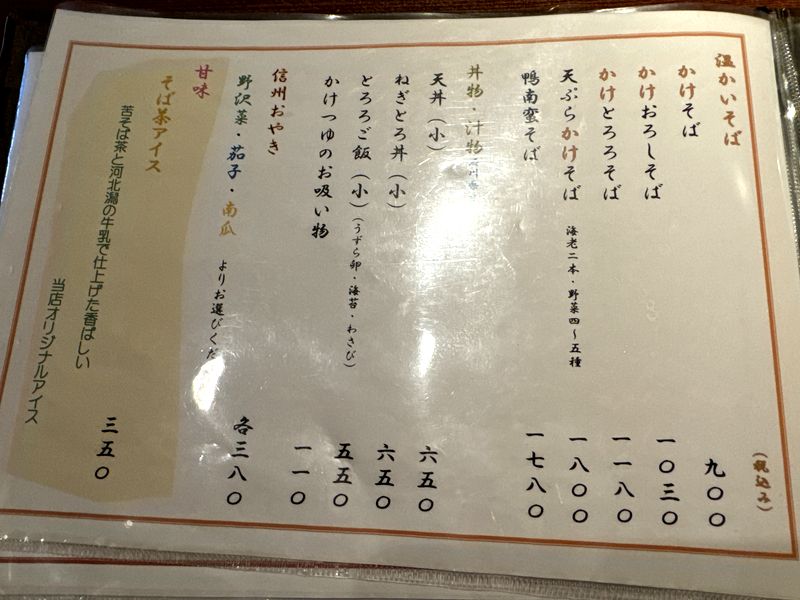 温かいそば
(税込み)
かけそば 九〇〇
かけおろしそば 一〇三〇
かけとろろそば 一一八〇
天ぷらかけそば 海老二本・野菜四〜五種 一八〇〇
鴨南蛮そば 一七八〇
丼物・汁物
天丼(小) 六五〇
ねぎとろ丼(小) 六五〇
とろろご飯(小)(うずら卵・海苔・わさび) 五五〇
かけつゆのお吸い物 一一〇
信州おやき
野沢菜・茄子・南瓜 よりお選びくだ 各三八〇
甘味
そば茶アイス 三五〇
苦そば茶と河北潟の牛乳で仕上げた香ばしい
当店オリジナルアイス